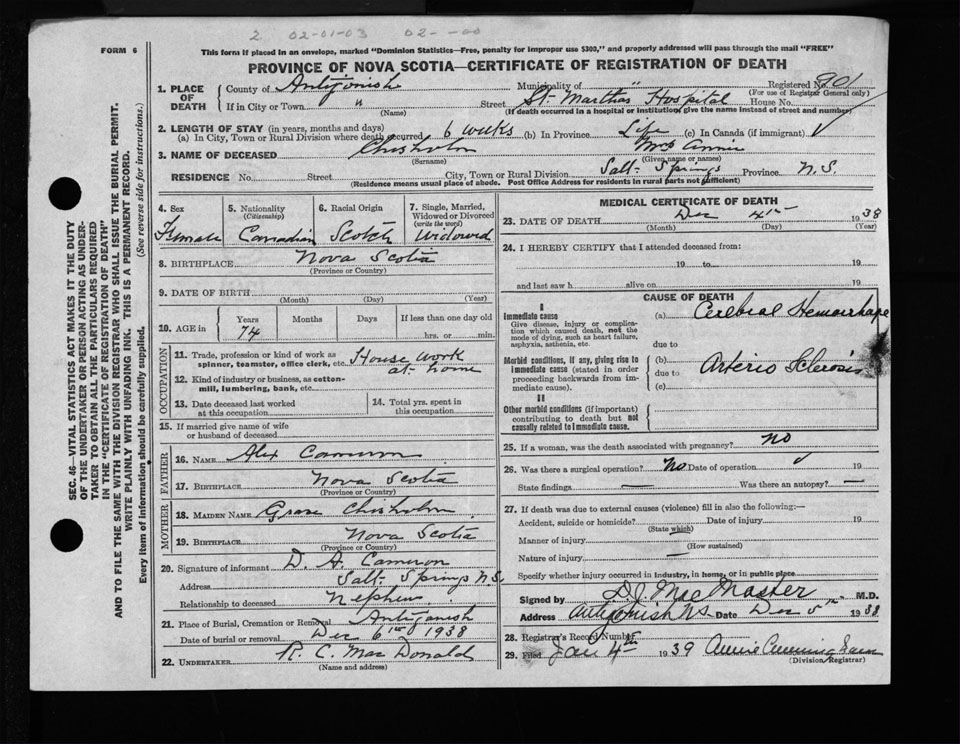 2 02-01-03 02-—00
FORM 6
This form if placed in an envelope, marked "Dominion Statistics—Free, penalty for improper use $300," and properly addressed will pass through the mail "FREE"
PROVINCE OF NOVA SCOTIA—CERTIFICATE OF REGISTRATION OF DEATH
1. PLACE OF DEATH County of Antigonish Municipality of " Registered No. 901
(For use of Registrar General only)
If in City or Town " Street St. Marthas Hospital House No.
(Name) (If death occurred in a hospital or institution, give the name instead of street and number)
2. LENGTH OF STAY (in years, months and days)
(a) In City, Town or Rural Division where death occurred 6 weeks (b) In Province Life (c) In Canada (if immigrant) ✓
3. NAME OF DECEASED Chisholm Mrs Annie
(Surname) (Given name or names)
RESIDENCE No. Street City, Town or Rural Division Salt Springs Province N.S.
(Residence means usual place of abode. Post Office Address for residents in rural parts not sufficient)
SEC. 46—VITAL STATISTICS ACT MAKES IT THE DUTY
OF THE UNDERTAKER OR PERSON ACTING AS UNDER-
TAKER TO OBTAIN ALL THE PARTICULARS REQUIRED
IN THE "CERTIFICATE OF REGISTRATION OF DEATH"
AND TO FILE THE SAME WITH THE DIVISION REGISTRAR WHO SHALL ISSUE THE BURIAL PERMIT.
WRITE PLAINLY WITH UNFADING INK. THIS IS A PERMANENT RECORD.
Every item of information should be carefully supplied. (See reverse side for instructions.)
4. Sex 5. Nationality (Citizenship) 6. Racial Origin 7. Single, Married, Widowed or Divorced (write the word)
Female Canadian Scotch Widowed
8. BIRTHPLACE Nova Scotia
(Province or Country)
9. DATE OF BIRTH
(Month) (Day) (Year)
10. AGE in Years Months Days If less than one day old
74 hrs. or min.
OCCUPATION
11. Trade, profession or kind of work as spinner, teamster, office clerk, etc. House work at home
12. Kind of industry or business, as cotton-mill, lumbering, bank, etc.
13. Date deceased last worked at this occupation 14. Total yrs. spent in this occupation
15. If married give name of wife or husband of deceased
FATHER
16. NAME Alex Cameron
17. BIRTHPLACE Nova Scotia
(Province or Country)
MOTHER
18. MAIDEN NAME Chisholm
19. BIRTHPLACE Nova Scotia
(Province or Country)
20. Signature of informant D. A. Cameron
Address Salt Springs N.S.
Relationship to deceased Nephew
21. Place of Burial, Cremation or Removal Antigonish
Date of burial or removal Dec 6th 1938
22. UNDERTAKER R. C. MacDonald
(Name and address)
MEDICAL CERTIFICATE OF DEATH
23. DATE OF DEATH Dec 4th 1938
(Month) (Day) (Year)
24. I HEREBY CERTIFY that I attended deceased from:
19 to 19
and last saw h alive on 19
CAUSE OF DEATH
I
Immediate cause
Give disease, injury or complication which caused death, not the mode of dying, such as heart failure, asphyxia, asthenia, etc.
(a) Cerebral Hemorrhage
due to
Morbid conditions, if any, giving rise to immediate cause (stated in order proceeding backwards from immediate cause).
(b) Arterio Sclerosis
due to
(c)
II
Other morbid conditions (if important) contributing to death but not causally related to immediate cause.
25. If a woman, was the death associated with pregnancy? no
26. Was there a surgical operation? No Date of operation ✓ 19
State findings — Was there an autopsy? —
27. If death was due to external causes (violence) fill in also the following:—
Accident, suicide or homicide? Date of injury 19
(State which)
Manner of injury
(How sustained)
Nature of injury
Specify whether injury occurred in industry, in home, or in public place
Signed by D.J. MacMaster M.D.
Address Antigonish NS Date Dec 5th 1938
28. Registrar's Record Number
29. Filed Jan 4th 1939 Annie Cunningham
(Division Registrar)